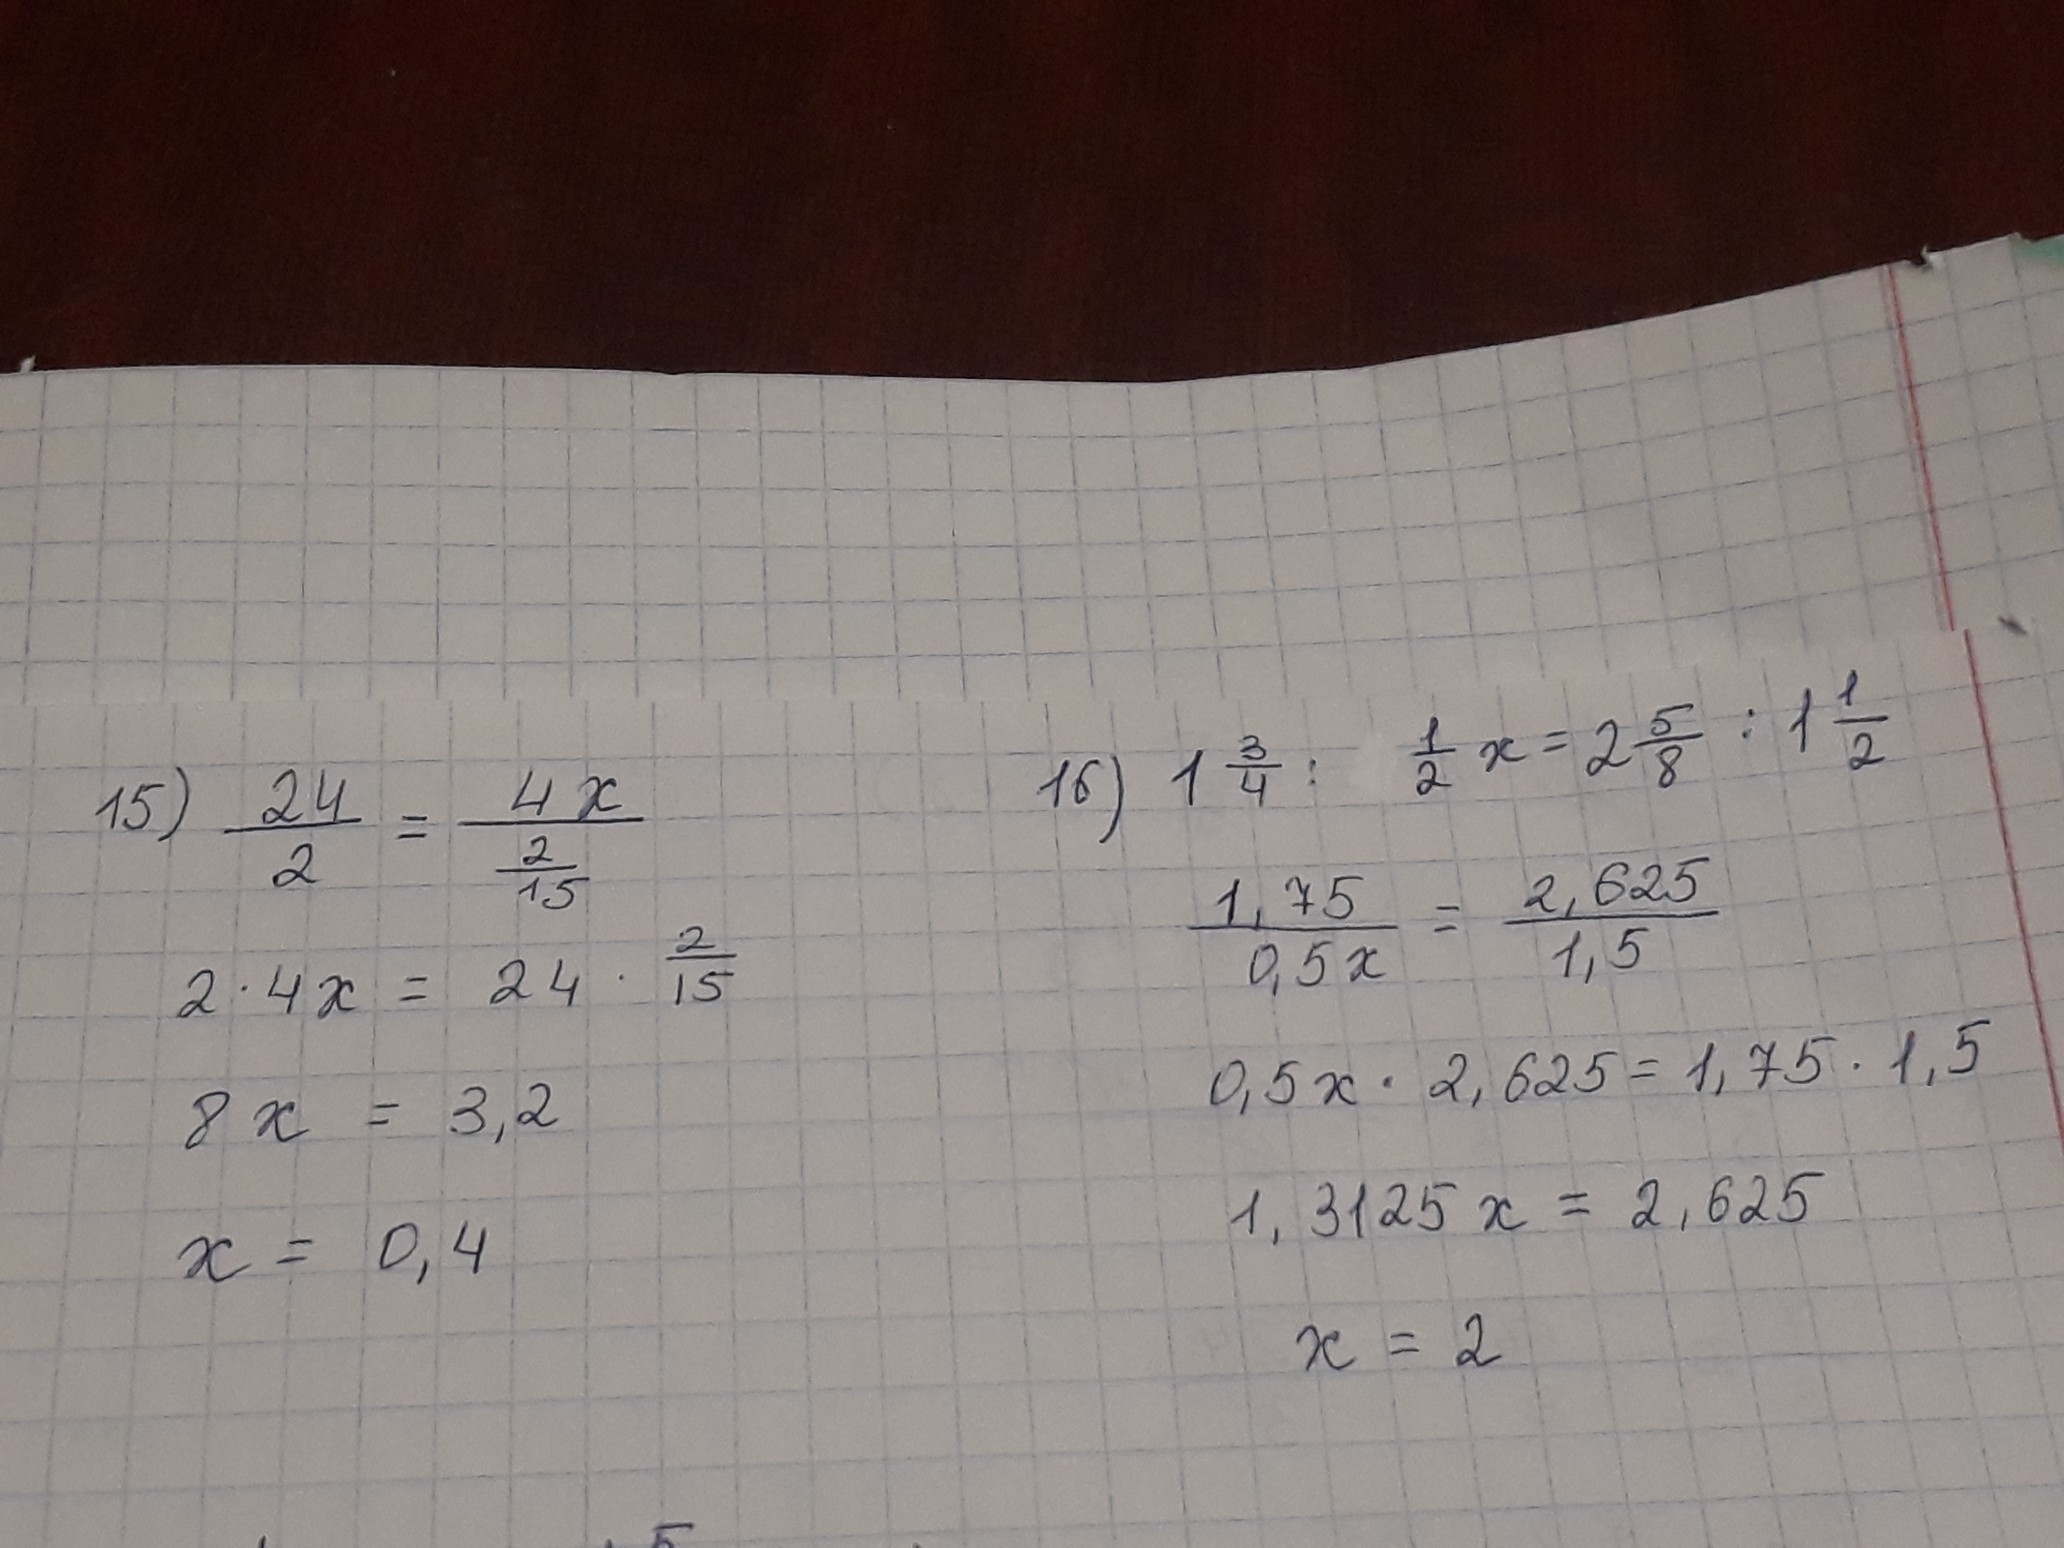 15) 24/2 = 4x/(2/15)
2·4x = 24 · 2/15
8x = 3,2
x = 0,4
16) 1 3/4 : 1/2 x = 2 5/8 : 1 1/2
1,75/0,5x = 2,625/1,5
0,5x · 2,625 = 1,75 · 1,5
1,3125x = 2,625
x = 2
5